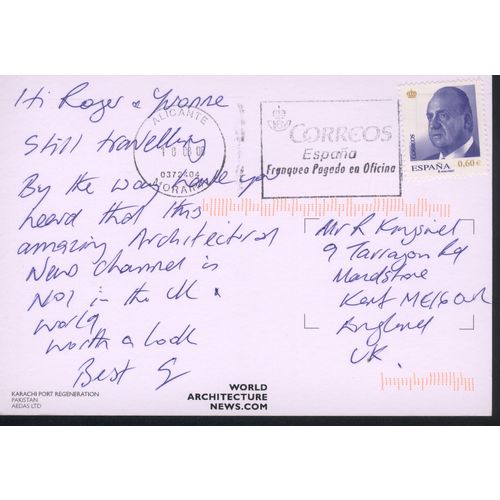 Hi Roger & Yvonne
Still travelling
By the way have you
heard that this
amazing Architectural
News channel is
NOT in the UK
world
worth a look
Best G
ALICANTE
18 08 08
0372404
CORREOS
España
Franqueo Pagado en Oficina
CORREOS
ESPAÑA
0,60€
Mr R
9 Tarragon Rd
Maidstone
Kent ME16
England
UK.
KARACHI PORT REGENERATION
PAKISTAN
AEDAS LTD
WORLD
ARCHITECTURE
NEWS.COM